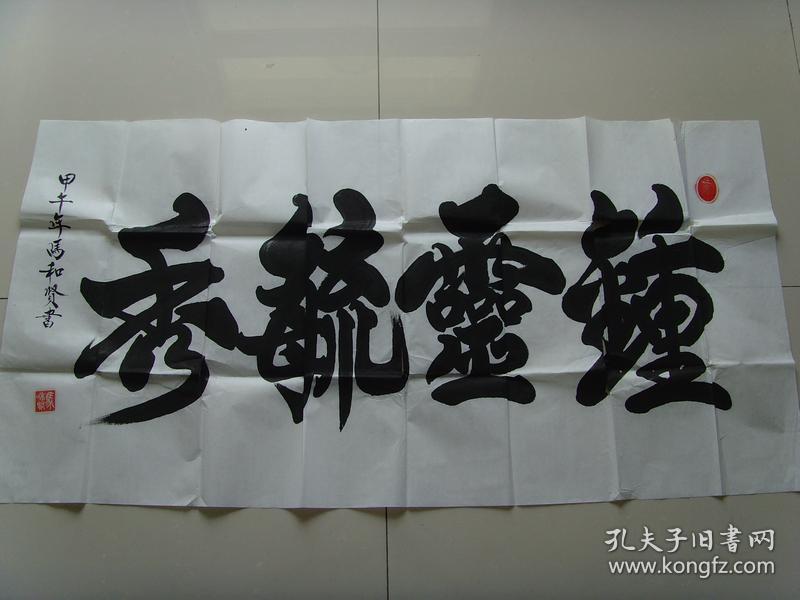 鍾靈毓秀
甲午年馬和賢書
孔夫子旧書网
www.kongfz.com